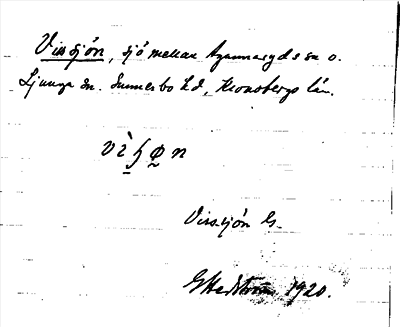 Vissjön, sjö mellan Agunnaryds sn o.
Ljunga sn. Sunnerbo hd, Kronobergs län.
Vissjön Gs.
GHedström 1920.